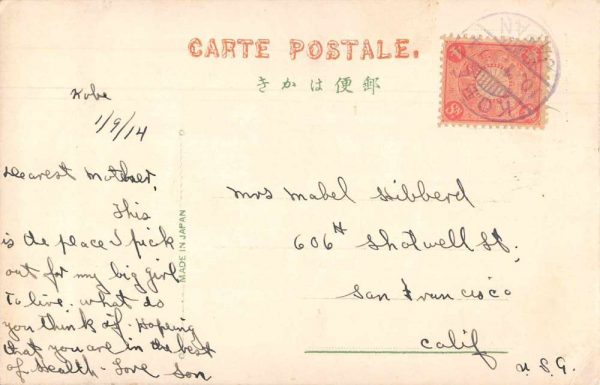 CARTE POSTALE.
きかは便郵
KOBE
Kobe
1/9/14
Dearest Mother,
This
is the place I pick
out for my big girl
to live. what do
you think of. Hoping
that you are in the best
of health. Love Son
MADE IN JAPAN
Mrs Mabel Hibberd
606 Shotwell St.
San Francisco
Calif
U.S.A.